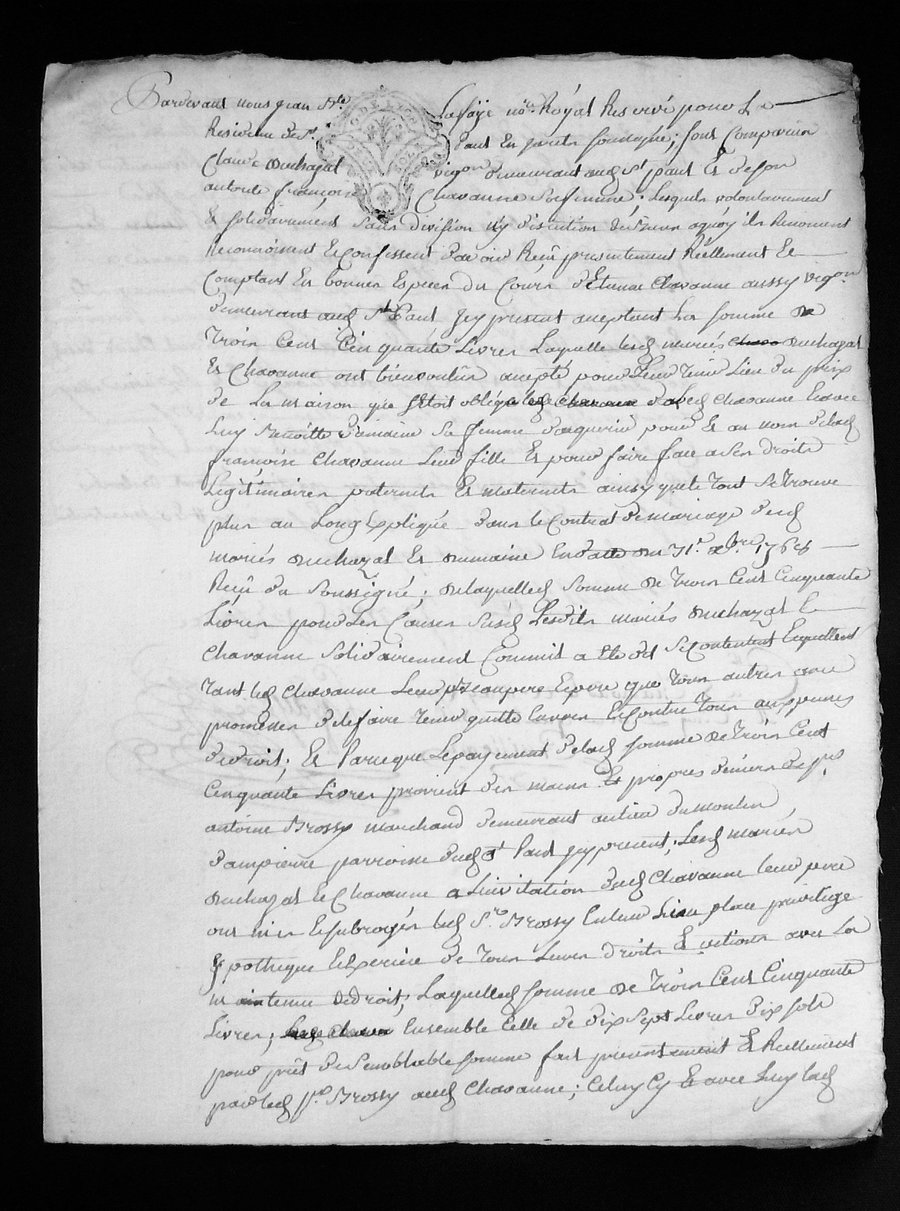 Pardevant nous jean Bte Lafaÿe nre Royal Reservé pour La
Residence de St Paul En jarets soussigné; sont Comparus
Claude duchazal vigon demeurant audt St paul Et de son
autorité françoise Chavanne sa femme; Lesquels volontairement
Et solidairement sans division ny discution de biens a quoy ils Renoncent
Reconnoissent Et Confessent d'avoir Reçu presentement Réellement Et
Comptant En bonnes Especes du Cours d'Etienne Chavanne aussy vigon
demeurant audt St Paul Icy present acceptant La somme de
Trois Cent Cinquante Livres Laquelle lesd mariés duchazal
Et Chavanne ont bien voulu accepté pour Leur Tenir Lieu du prix
de La maison que s'Etoit obligé led Chavanne Et avec
Luy Benoitte Dumaine sa femme d'acquerir pour Et au nom de lad
françoise Chavanne Leur fille Et pour faire face a ses droits
Legitimaires paternels Et maternels ainsy que le Tout se trouve
plus au Long Expliqué dans le Contrat de mariage desd
mariés duchazal Et dumaine En datte du 1768
Reçu du Soussigné; de laquelled somme de Trois Cent Cinquante
Livres pour Les Causes susd Lesdits mariés duchazal Et
Chavanne Solidairement Comme il a Eté dit se Contentent Et quittent
Tant led Chavanne Leur beaupere Et pere que Tous autres avec
promesses de le faire Tenir quitte Envers Et Contre Tous aux peines
de droit; Et Parceque Le payement de lad somme de Trois Cent
Cinquante Livres provient des mains Et propres deniers de
antoine Brossy marchand demeurant au lieu du moulin
Dampierre parroisse dudt St Paul Icy present, Lesd mariés
duchazal Et Chavanne a L'invitation dud Chavanne Leur pere
ont mis Et subrogés led Sr Brossy En leur Lieu place privilege
hypotheque Et Exercice de Tous Leurs droits Et actions avec La
maintenue de droit; Laquelled somme de Trois Cent Cinquante
Livres; Ensemble Celle de dix sept Livres dix sols
pour prêt de semblable somme fait presentement Et Réellement
par led Sr Brossy aud Chavanne; Celuy Cy Et avec Luy lad